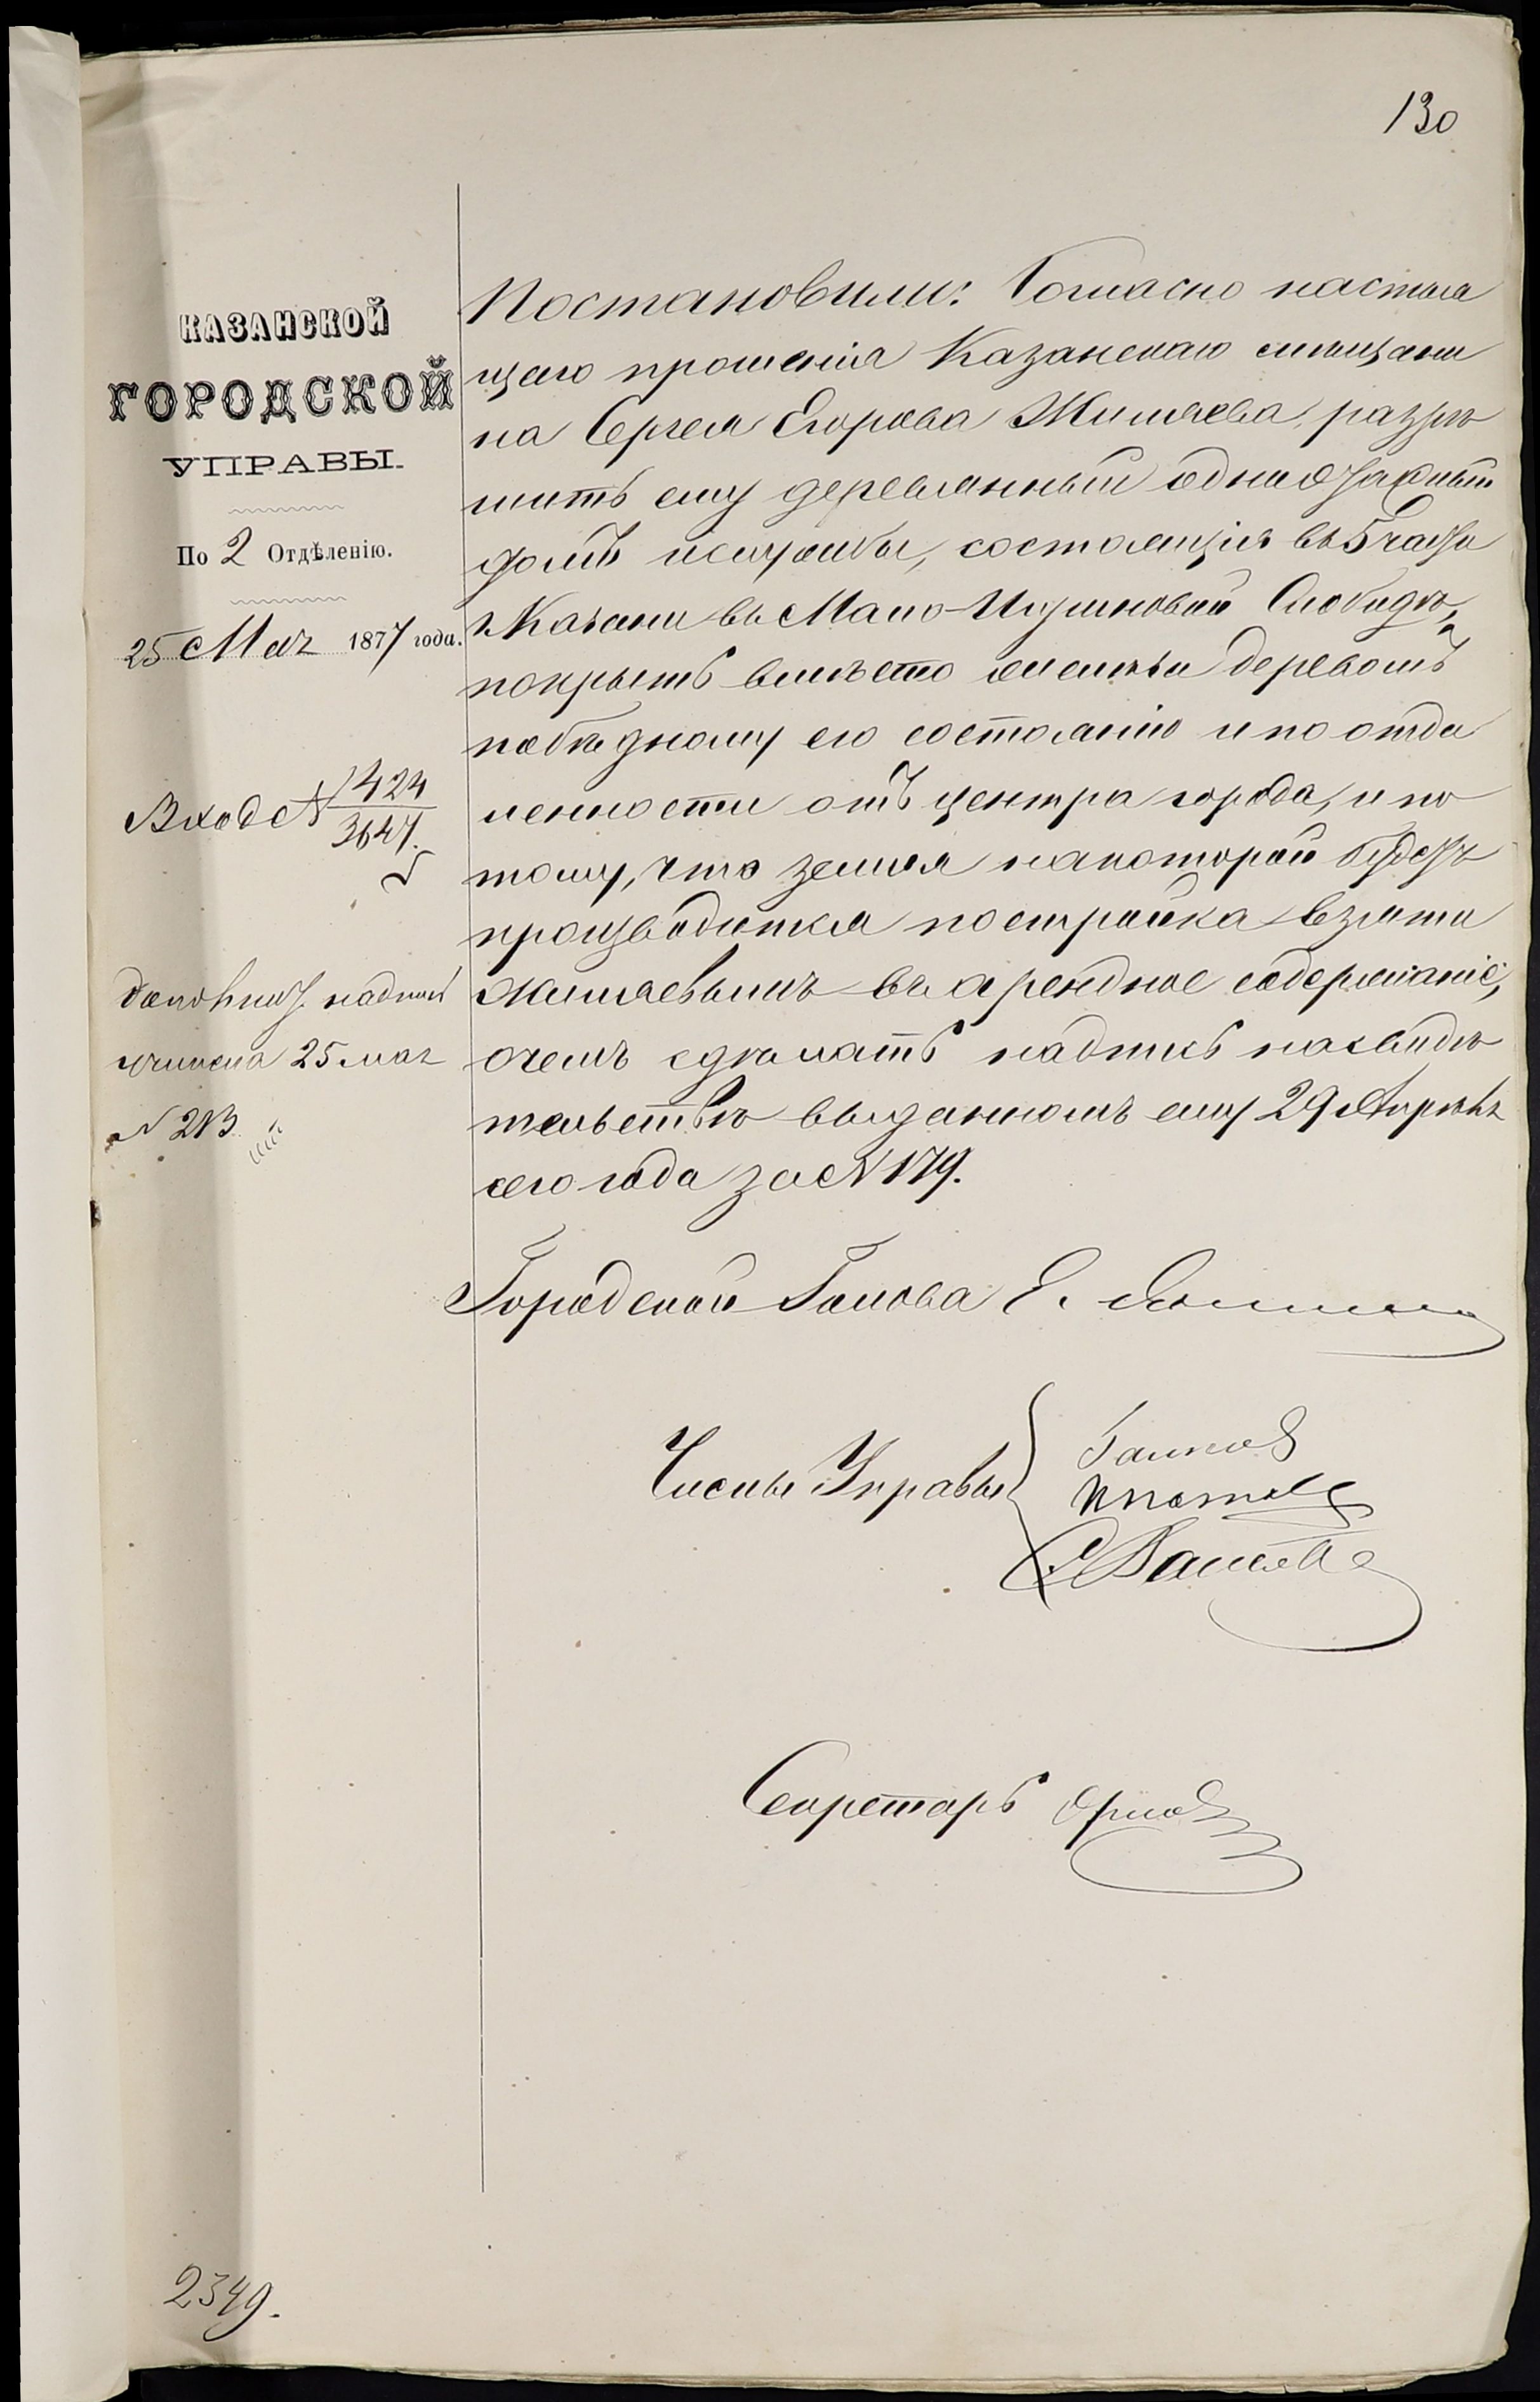 130
КАЗАНСКОЙ
ГОРОДСКОЙ
УПРАВЫ.
По 2 Отдѣленію.
25 Мая 1877 года.
Вход № 424
3647.
надпись
учинена 25 мая
№ 213
Постановили: Согласно настоя
щаго прошенія Казанскаго мѣщани
на Сергея Егорова Жиляева, разрѣ
шить ему деревянный одноэтажный
домъ и службы, состоящія въ 5 части
г. Казани въ Мало-Игумновой Слободѣ,
покрыть вмѣсто желѣза деревомъ
по бѣдному его состоянію и по отда
ленности отъ центра города, и по
тому, что земля на которой будетъ
производится постройка взята
Жиляевымъ въ арендное содержаніе,
о чемъ сдѣлать надпись на свидѣ
тельствѣ выданномъ ему 29 Апрѣля
сего года за № 179.
Городской Голова Е.
Члены Управы
Секретарь Орлов
2349.